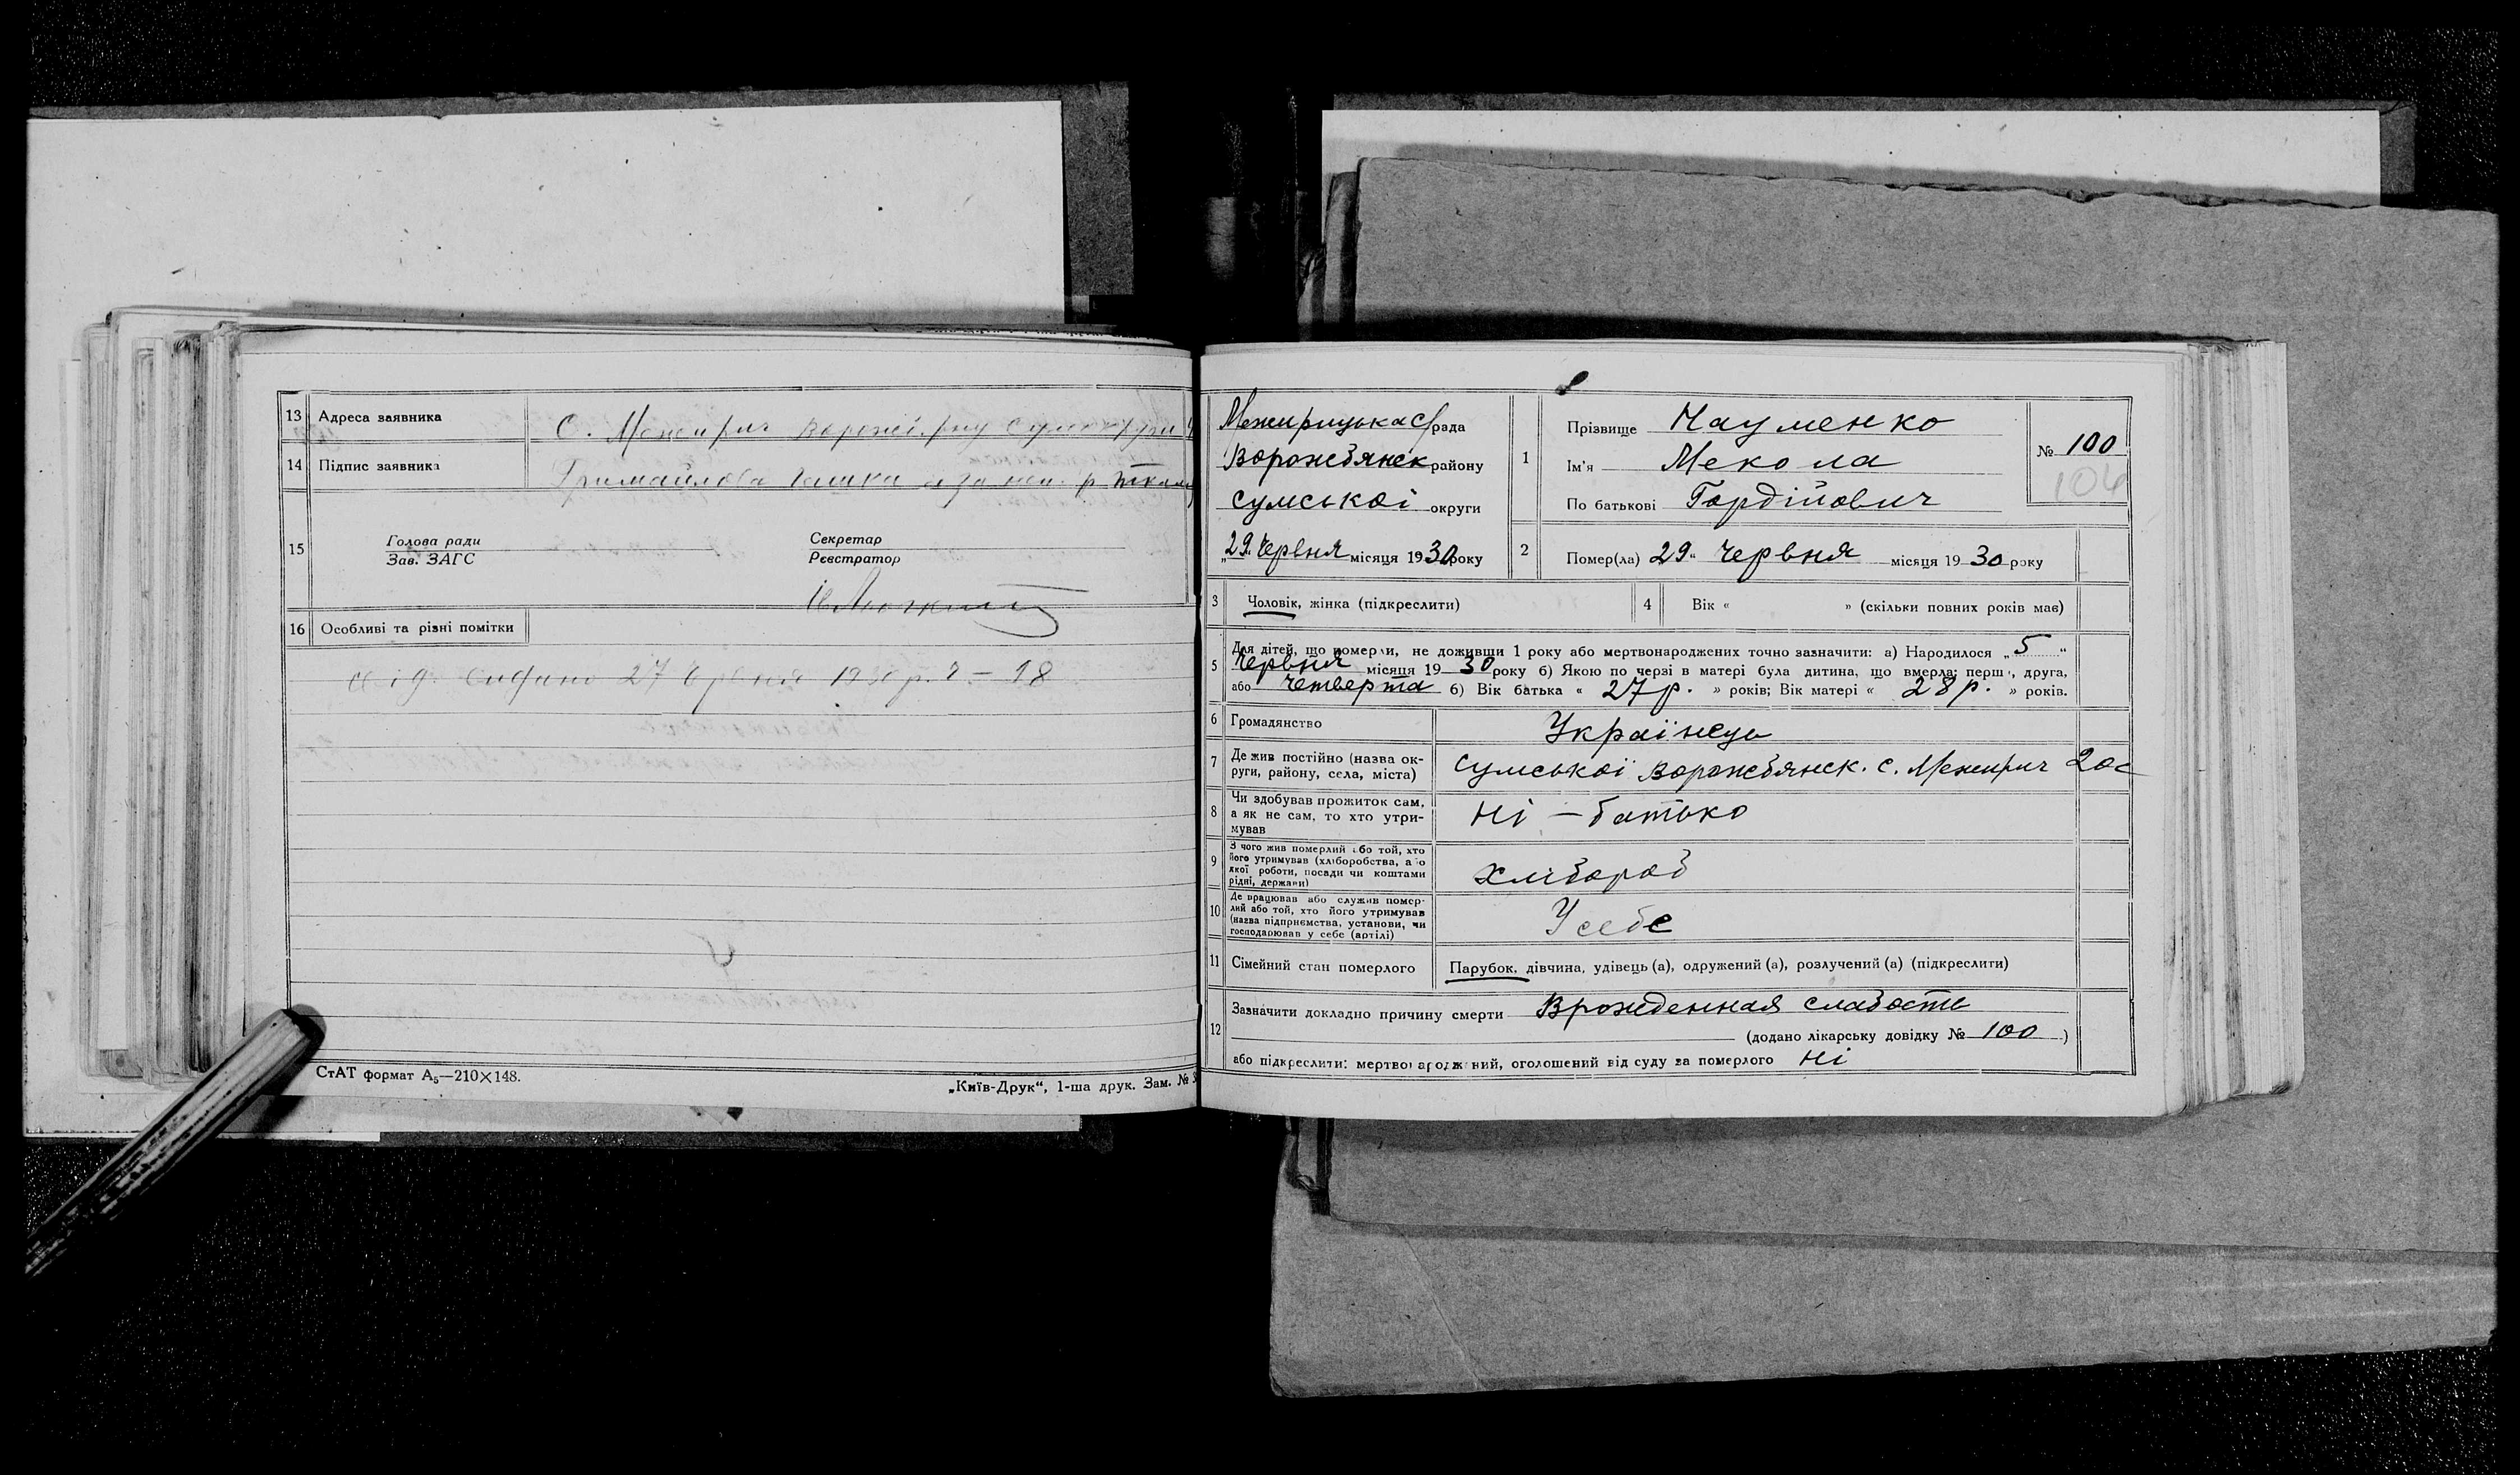 13 Адреса заявника С. Межирич
14 Підпис заявника Гримайлова
15 Голова ради Секретар
Зав. ЗАГС Реєстратор
16 Особливі та різні помітки
27 червня 1930 р. 18
СтАТ формат А₅—210×148.
„Київ-Друк“, 1-ша друк. Зам. №
Межирицька С/рада
Ворожбянск району
Сумської округи
„29“ Червня місяця 1930 року
1 Прізвище Науменко
Ім'я Мекола
По батькові Гордійович
№ 100
104
2 Помер(ла) 29“ Червня місяця 19 30 року
3 Чоловік, жінка (підкреслити)
4 Вік « » (скільки повних років має)
5 Для дітей, що померли, не доживши 1 року або мертвонароджених точно зазначити: а) Народилося „5“
Червня місяця 19 30 року б) Якою по черзі в матері була дитина, що вмерла: перша, друга,
або четверта б) Вік батька « 27 р. » років; Вік матері « 28 р. » років.
6 Громадянство Українець
7 Де жив постійно (назва ок-
руги, району, села, міста) Сумської Ворожбянск. с. Межирич 20с
8 Чи здобував прожиток сам,
а як не сам, то хто утри-
мував Ні — батько
9 З чого жив померлий або той, хто
його утримував (хліборобства, або
якої роботи, посади чи коштами
рідні, держави) Хлібороб
10 Де працював або служив помер-
лий або той, хто його утримував
(назва підприємства, установи, чи
господарював у себе (артілі) У себе
11 Сімейний стан померлого Парубок, дівчина, удівець (а), одружений (а), розлучений (а) (підкреслити)
12 Зазначити докладно причину смерти Врожденная слабость
(додано лікарську довідку № 100)
або підкреслити: мертвонароджений, оголошений від суду за померлого Ні